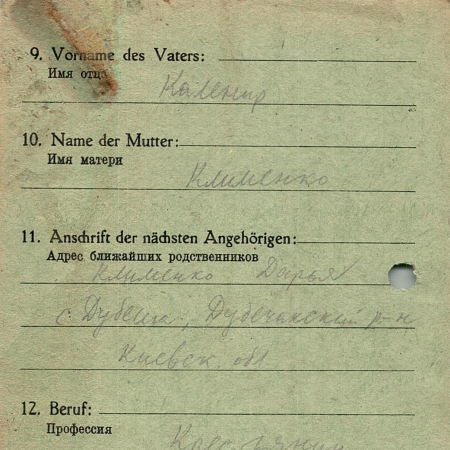 9. Vorname des Vaters:
Имя отца
10. Name der Mutter:
Имя матери
Клименко
11. Anschrift der nächsten Angehörigen:
Адрес ближайших родственников
Клименко Дарья
с. р-н
Киевск. обл
12. Beruf:
Профессия